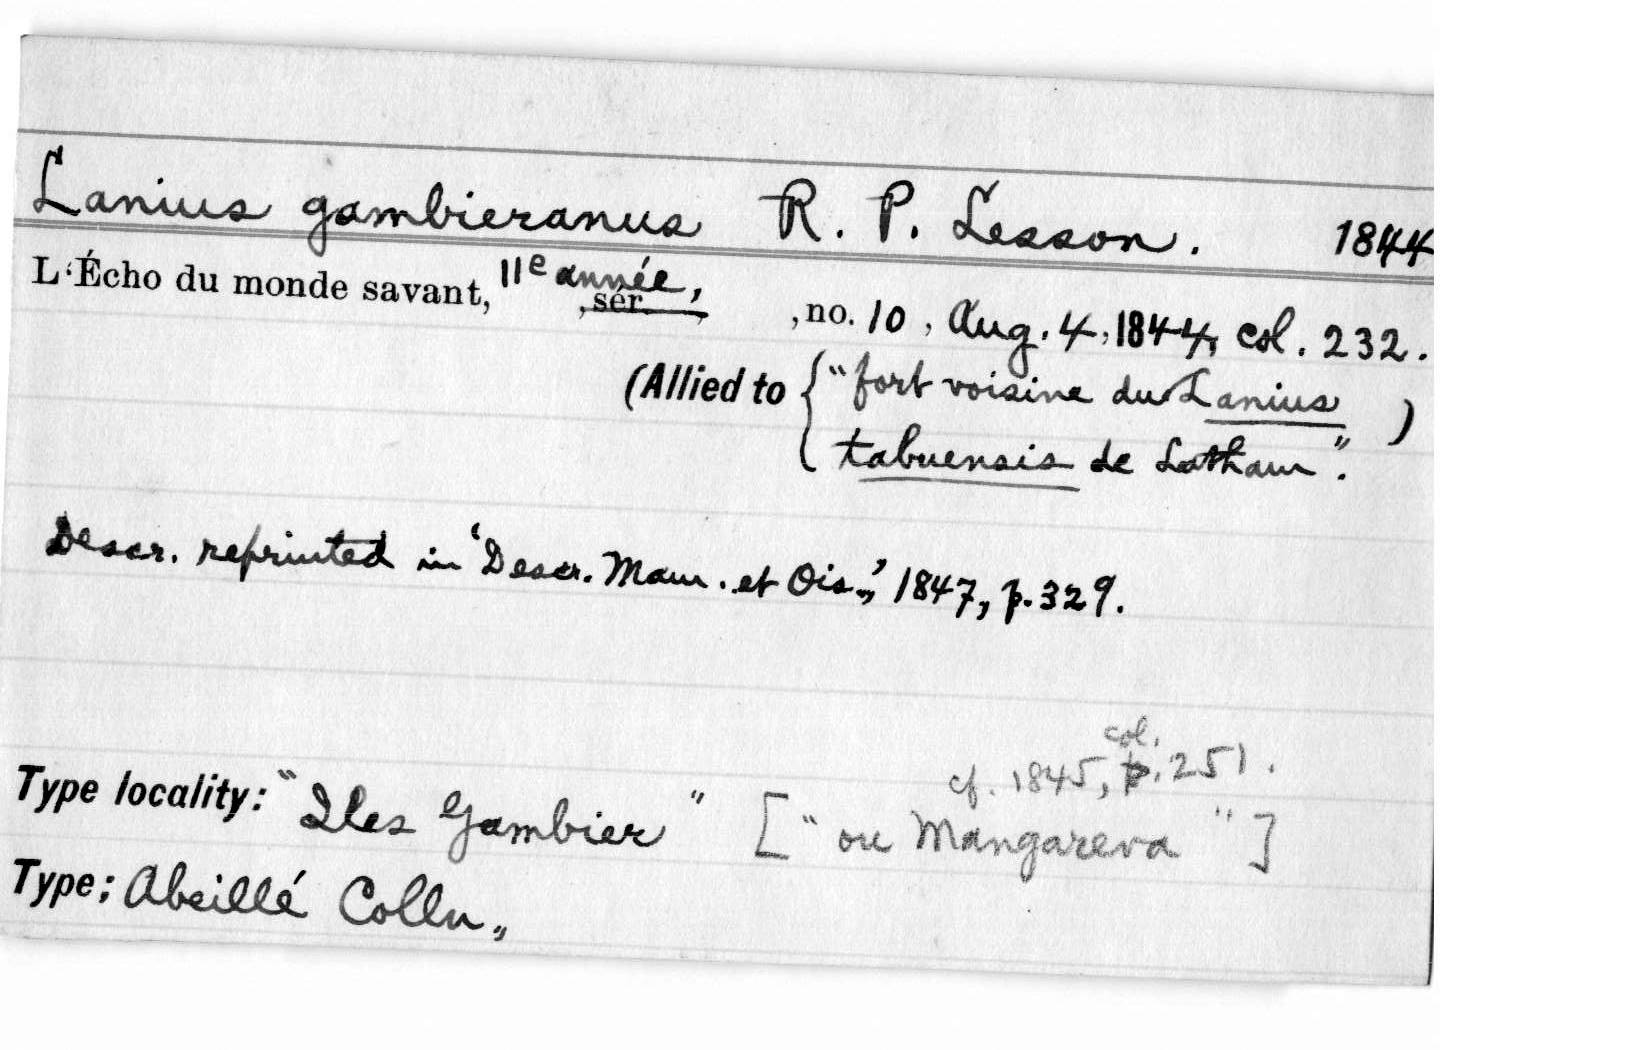 Lanius gambieranus R. P. Lesson. 1844
L'Écho du monde savant, 11e année, , sér. , , no. 10 , Aug. 4, 1844, col. 232.
(Allied to { "fort voisine du Lanius )
tabuensis de Latham".
Descr. reprinted in 'Descr. Mam. et Ois.,' 1847, p. 329.
col.
cf. 1845, p. 251.
Type locality: "Iles Gambier" ["ou Mangareva"]
Type: Abeillé Colln.